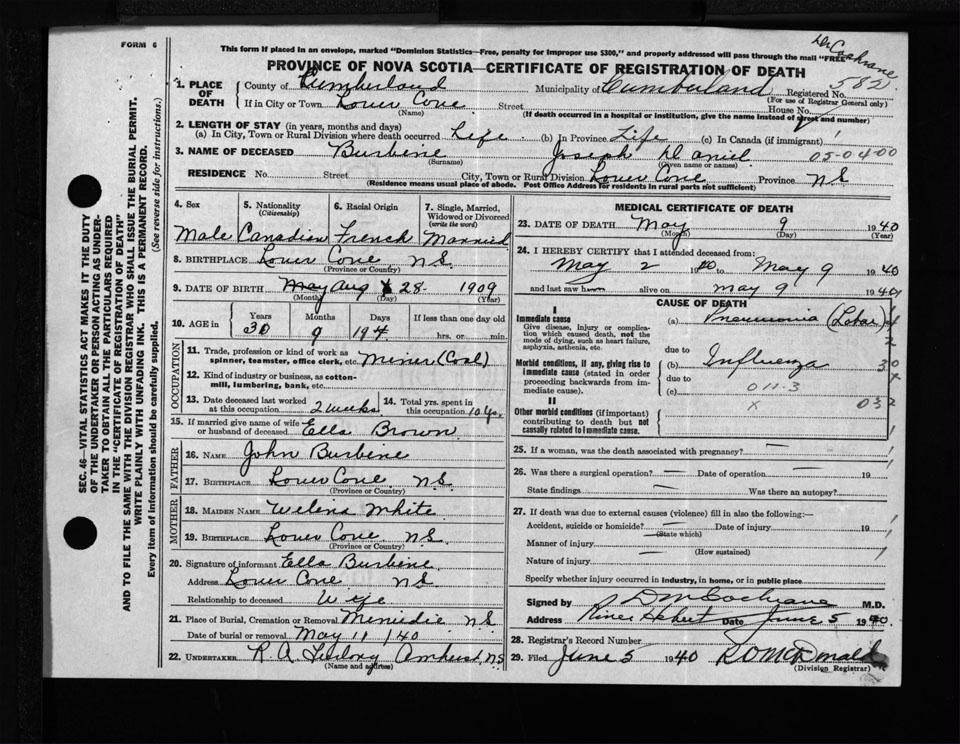 FORM 6
This form if placed in an envelope, marked "Dominion Statistics—Free, penalty for improper use $300," and properly addressed will pass through the mail "FREE"
Dr Cochrane
PROVINCE OF NOVA SCOTIA—CERTIFICATE OF REGISTRATION OF DEATH
1. PLACE OF DEATH County of Cumberland Municipality of Cumberland Registered No. 582
(For use of Registrar General only)
If in City or Town Lower Cove Street House No.
(Name) (If death occurred in a hospital or institution, give the name instead of street and number)
2. LENGTH OF STAY (in years, months and days)
(a) In City, Town or Rural Division where death occurred Life (b) In Province Life (c) In Canada (if immigrant)
3. NAME OF DECEASED Burbine Joseph Daniel 05-04-00
(Surname) (Given name or names)
RESIDENCE No. Street City, Town or Rural Division Lower Cove Province NS
(Residence means usual place of abode. Post Office Address for residents in rural parts not sufficient)
4. Sex 5. Nationality (Citizenship) 6. Racial Origin 7. Single, Married, Widowed or Divorced (write the word)
Male Canadian French Married
8. BIRTHPLACE Lower Cove NS.
(Province or Country)
9. DATE OF BIRTH May Aug 28 1909
(Month) (Day) (Year)
10. AGE in Years Months Days If less than one day old
30 9 hrs. or min.
OCCUPATION
11. Trade, profession or kind of work as spinner, teamster, office clerk, etc. Miner (Coal)
12. Kind of industry or business, as cotton-mill, lumbering, bank, etc.
13. Date deceased last worked at this occupation 2 weeks 14. Total yrs. spent in this occupation 10 yrs
15. If married give name of wife or husband of deceased Ella Brown
FATHER
16. NAME John Burbine
17. BIRTHPLACE Lower Cove NS.
(Province or Country)
MOTHER
18. MAIDEN NAME Welena White
19. BIRTHPLACE Lower Cove NS.
(Province or Country)
20. Signature of informant Ella Burbine
Address Lower Cove NS
Relationship to deceased Wife
21. Place of Burial, Cremation or Removal Minudie NS
Date of burial or removal May 11 /40
22. UNDERTAKER R A Amherst NS
(Name and address)
MEDICAL CERTIFICATE OF DEATH
23. DATE OF DEATH May 9 1940
(Month) (Day) (Year)
24. I HEREBY CERTIFY that I attended deceased from:
May 2 1940 to May 9 1940
and last saw h alive on May 9 1940
CAUSE OF DEATH
I
Immediate cause
Give disease, injury or complication which caused death, not the mode of dying, such as heart failure, asphyxia, asthenia, etc.
(a) Pneumonia (Lobar)
due to
Morbid conditions, if any, giving rise to immediate cause (stated in order proceeding backwards from immediate cause).
(b) Influenza
due to
(c) 011-3
II
Other morbid conditions (if important) contributing to death but not causally related to immediate cause.
25. If a woman, was the death associated with pregnancy?
26. Was there a surgical operation? — Date of operation — 19
State findings — Was there an autopsy?
27. If death was due to external causes (violence) fill in also the following:—
Accident, suicide or homicide? — Date of injury 19
(State which)
Manner of injury
(How sustained)
Nature of injury
Specify whether injury occurred in industry, in home, or in public place
Signed by D M Cochrane M.D.
Address River Hebert Date June 5 1940
28. Registrar's Record Number
29. Filed June 5 1940 R D McDonald
(Division Registrar)
SEC. 46—VITAL STATISTICS ACT MAKES IT THE DUTY
OF THE UNDERTAKER OR PERSON ACTING AS UNDERTAKER TO OBTAIN ALL THE PARTICULARS REQUIRED
IN THE "CERTIFICATE OF REGISTRATION OF DEATH"
AND TO FILE THE SAME WITH THE DIVISION REGISTRAR WHO SHALL ISSUE THE BURIAL PERMIT.
WRITE PLAINLY WITH UNFADING INK. THIS IS A PERMANENT RECORD.
Every item of information should be carefully supplied. (See reverse side for instructions.)